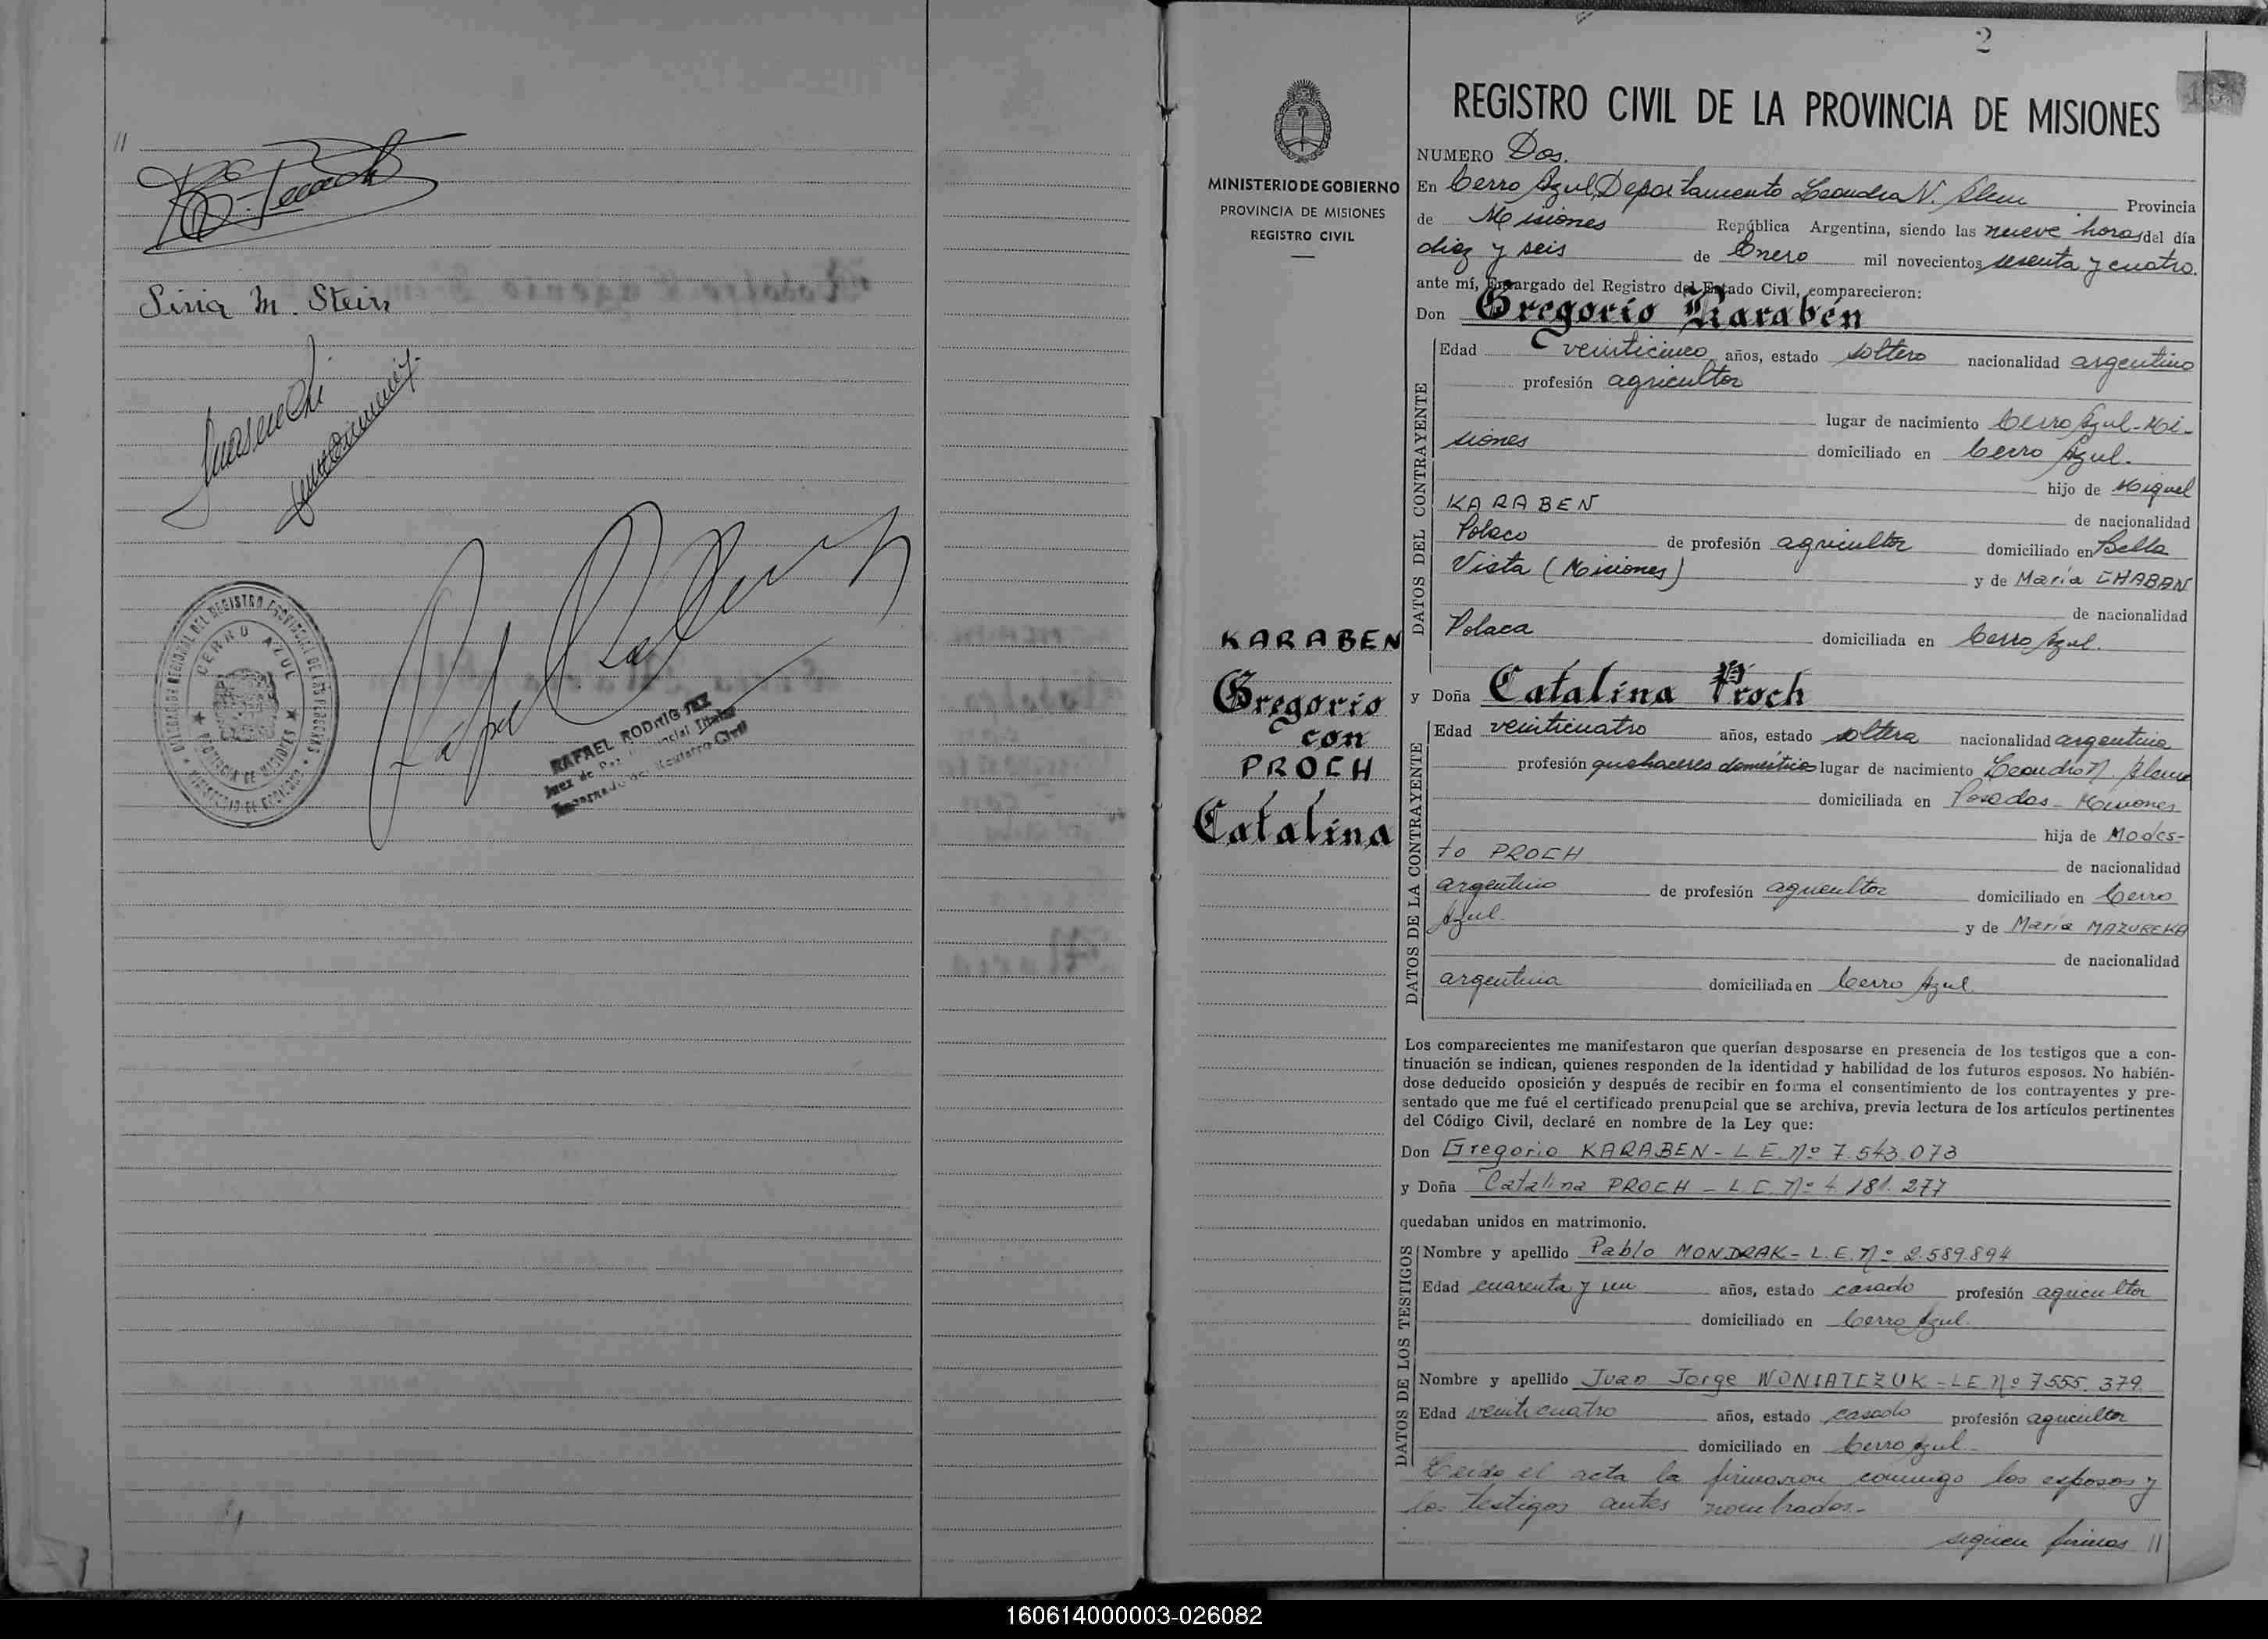 //
Siria M. Stein
DELEGACION REGIONAL DEL REGISTRO PROVINCIAL DE LAS PERSONAS
CERRO AZUL
PROVINCIA DE MISIONES
MINISTERIO DE GOBIERNO
RAFAEL RODRIGUEZ
Juez de Paz Titular
Encargado Registro Civil
2
MINISTERIO DE GOBIERNO
PROVINCIA DE MISIONES
REGISTRO CIVIL
KARABEN
Gregorio
con
PROCH
Catalina
REGISTRO CIVIL DE LA PROVINCIA DE MISIONES
NUMERO Dos.
En Cerro Azul, Departamento Leandro N. Alem Provincia
de Misiones República Argentina, siendo las nueve horas del día
diez y seis de Enero mil novecientos sesenta y cuatro.
ante mí, Encargado del Registro del Estado Civil, comparecieron:
Don Gregorio Karabén
DATOS DEL CONTRAYENTE
Edad veinticinco años, estado soltero nacionalidad argentino
profesión agricultor
lugar de nacimiento Cerro Azul-Mi-
siones domiciliado en Cerro Azul.
hijo de Miguel
KARABEN de nacionalidad
Polaco de profesión agricultor domiciliado en Bella
Vista (Misiones) y de María CHABAN
de nacionalidad
Polaca domiciliada en Cerro Azul.
y Doña Catalina Proch
DATOS DE LA CONTRAYENTE
Edad veinticuatro años, estado soltera nacionalidad argentina
profesión quehaceres domésticos lugar de nacimiento Leandro N. Alem
domiciliada en Posadas - Misiones
hija de Modes-
to PROCH de nacionalidad
argentino de profesión agricultor domiciliado en Cerro
Azul. y de María MAZUREKA
de nacionalidad
argentina domiciliada en Cerro Azul.
Los comparecientes me manifestaron que querían desposarse en presencia de los testigos que a con-
tinuación se indican, quienes responden de la identidad y habilidad de los futuros esposos. No habién-
dose deducido oposición y después de recibir en forma el consentimiento de los contrayentes y pre-
sentado que me fué el certificado prenupcial que se archiva, previa lectura de los artículos pertinentes
del Código Civil, declaré en nombre de la Ley que:
Don Gregorio KARABEN - L.E. Nº 7.543.073
y Doña Catalina PROCH - L.C. Nº 4.181.277
quedaban unidos en matrimonio.
DATOS DE LOS TESTIGOS
Nombre y apellido Pablo MONDRAK - L.E. Nº 2.589.894
Edad cuarenta y un años, estado casado profesión agricultor
domiciliado en Cerro Azul.
Nombre y apellido Juan Jorge WONIATCZUK - L.E. Nº 7.555.379.
Edad veinticuatro años, estado casado profesión agricultor
domiciliado en Cerro Azul.
Leida el acta la firmaron conmigo los esposos y
los testigos antes nombrados.-
siguen firmas //
160614000003-026082